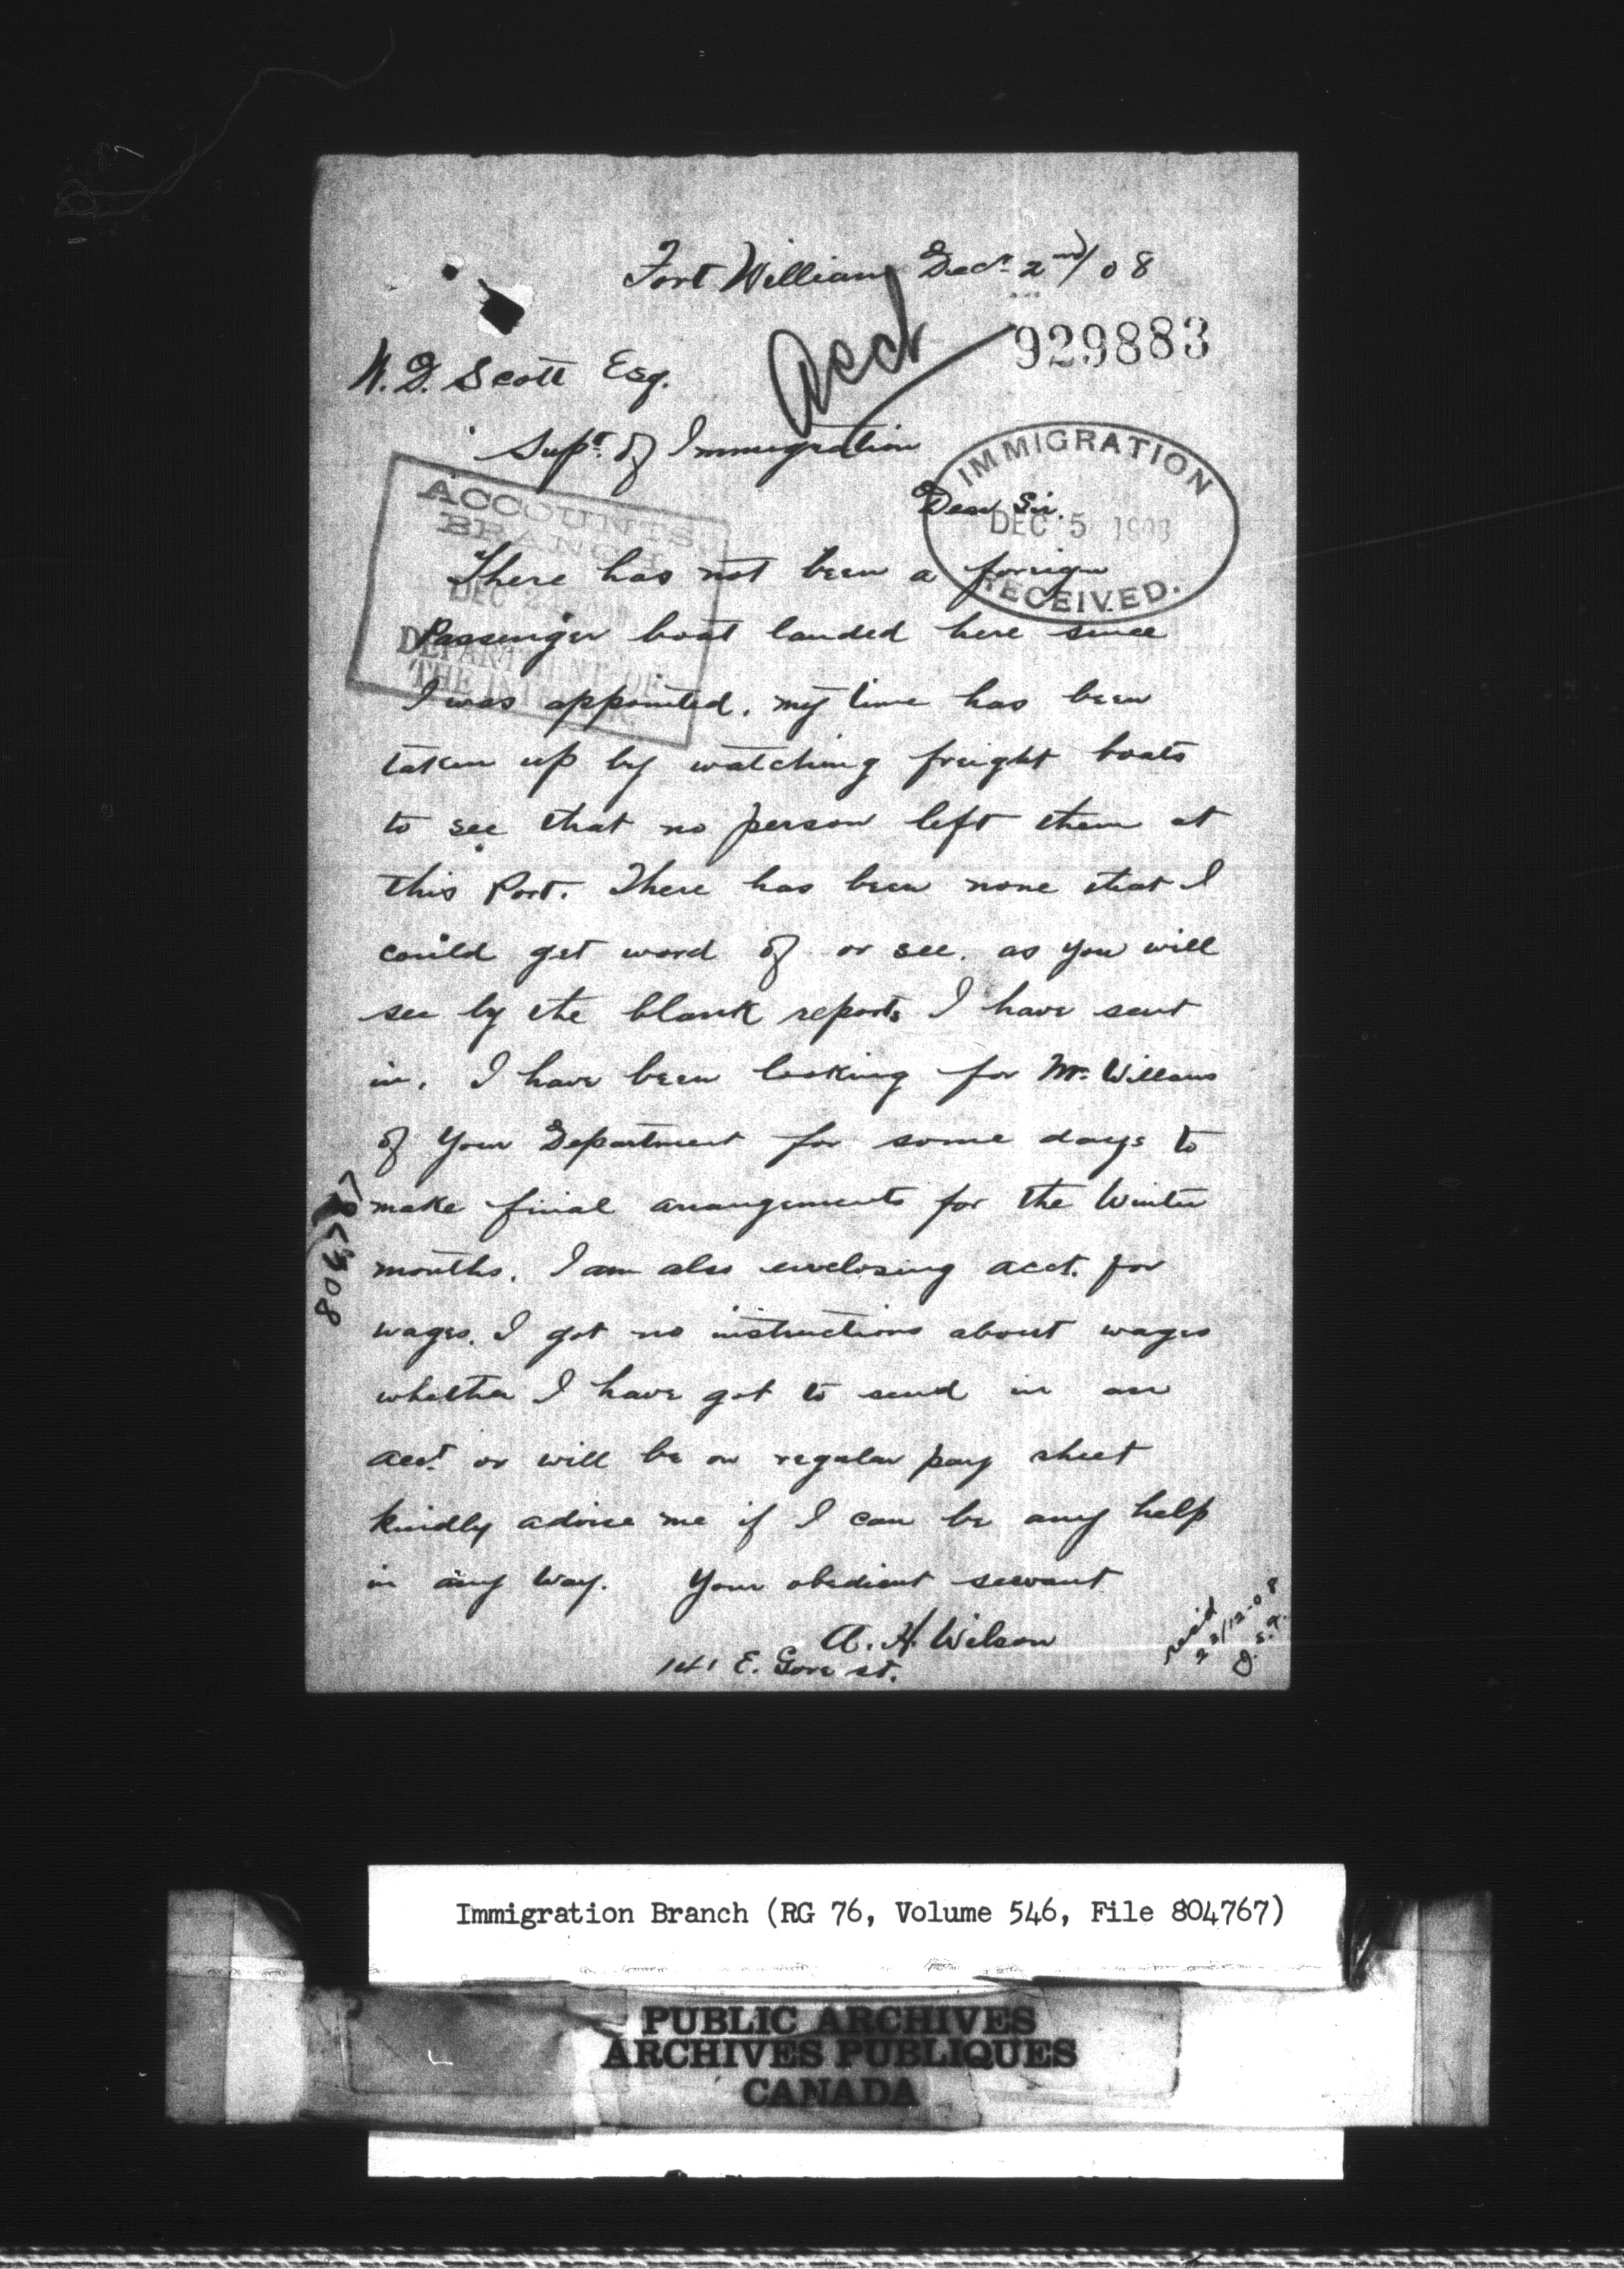 Fort William Decr 2nd/08
929883
Acct
W. D. Scott Esq.
Supt. of Immigration
IMMIGRATION
DEC 5 1908
RECEIVED.
Dear Sir.
ACCOUNTS
BRANCH
DEC
DEPARTMENT OF
THE INTERIOR
There has not been a foreign
Passenger boat landed here since
I was appointed. my time has been
taken up by watching freight boats
to see that no person left them at
this Port. There has been none that I
could get word of or see. as you will
see by the blank reports I have sent
in. I have been looking for Mr. Willans
of Your Department for some days to
make final arrangements for the Winter
months. I am also enclosing acct. for
wages. I got no instructions about wages
whether I have got to send in an
acct. or will be on regular pay sheet
kindly advise me if I can be any help
in any way. Your obedient servant
A. H. Wilson
141 E. Gore st.
804767
22/12-08
Immigration Branch (RG 76, Volume 546, File 804767)
PUBLIC ARCHIVES
ARCHIVES PUBLIQUES
CANADA